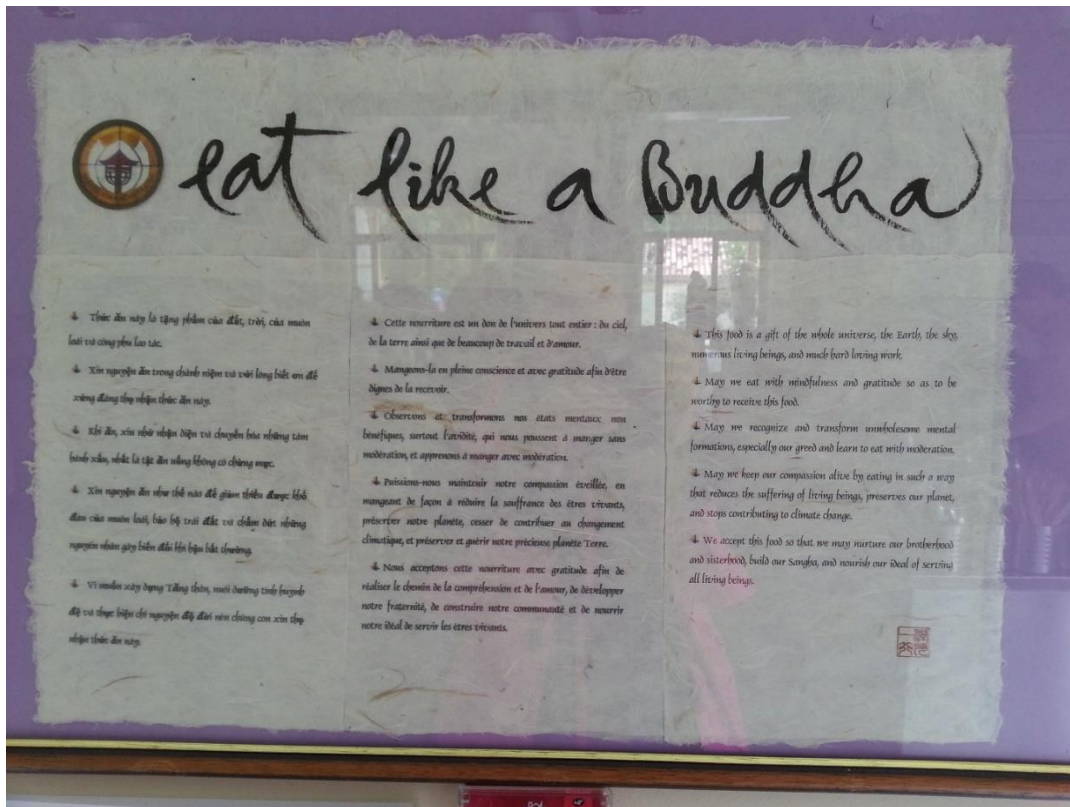 eat like a Buddha
Thức ăn này là tặng phẩm của đất, trời, của muôn
loài và công phu lao tác.
Xin nguyện ăn trong chánh niệm và với lòng biết ơn để
xứng đáng thọ nhận thức ăn này.
Khi ăn, xin nhớ nhận diện và chuyển hóa những tâm
hành xấu, nhất là tật ăn uống không có chừng mực.
Xin nguyện ăn như thế nào để giảm thiểu được khổ
đau của muôn loài, bảo hộ trái đất và chấm dứt những
nguyên nhân gây biến đổi khí hậu bất thường.
Vì muốn xây dựng Tăng thân, nuôi dưỡng tình huynh
đệ và thực hiện chí nguyện độ đời nên chúng con xin thọ
nhận thức ăn này.
Cette nourriture est un don de l'univers tout entier : du ciel,
de la terre ainsi que de beaucoup de travail et d'amour.
Mangeons-la en pleine conscience et avec gratitude afin d'être
dignes de la recevoir.
Observons et transformons nos états mentaux non
bénéfiques, surtout l'avidité, qui nous poussent à manger sans
modération, et apprenons à manger avec modération.
Puissions-nous maintenir notre compassion éveillée, en
mangeant de façon à réduire la souffrance des êtres vivants,
préserver notre planète, cesser de contribuer au changement
climatique, et préserver et guérir notre précieuse planète Terre.
Nous acceptons cette nourriture avec gratitude afin de
réaliser le chemin de la compréhension et de l'amour, de développer
notre fraternité, de construire notre communauté et de nourrir
notre idéal de servir les êtres vivants.
This food is a gift of the whole universe, the Earth, the sky,
numerous living beings, and much hard loving work.
May we eat with mindfulness and gratitude so as to be
worthy to receive this food.
May we recognize and transform unwholesome mental
formations, especially our greed and learn to eat with moderation.
May we keep our compassion alive by eating in such a way
that reduces the suffering of living beings, preserves our planet,
and stops contributing to climate change.
We accept this food so that we may nurture our brotherhood
and sisterhood, build our Sangha, and nourish our ideal of serving
all living beings.